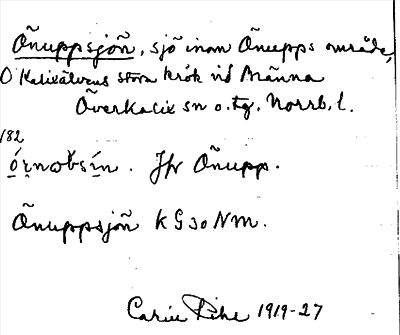 Õnuppsjõn, sjö inom Õnupps område,
O Kalixälvens stora krök vid Männa
Överkalix sn o. tg. Norrb. l.
182
Jfr Õnupp.
Õnuppsjõn KG 30 NM.
Carin Pihl 1919-27